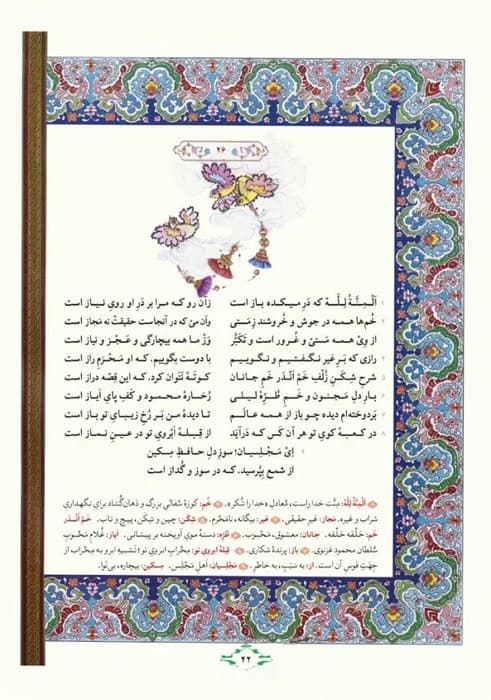 ۲۶
۱ اَلْمِنَّةُ لِلَّـه که دَرِ میـکـده باز است زآن رو کـه مـرا بر دَرِ او رویِ نیـاز است
۲ خُم‌ها همـه در جوش و خُـروشند زِمَستی وآن مِیْ که در آنجاست حقیقتْ نه مَجاز است
۳ از وِیْ همـه مستـیّ و غُـرور است و تَکَبُّر وَزْ ما همه بیچارگی و عَجْز و نیاز است
۴ رازی که بَرِ غیر نـگفتـیم و نـگوییـم با دوست بگوییم، که او مَحْرَمِ راز است
۵ شرحِ شِکَنِ زُلْفِ خَم اَنْـدَر خَمِ جانان کوتَـهْ نَتَوان کرد، که این قِصّه دراز است
۶ بارِ دلِ مجنون و خَـمِ طُـرّهٔ لیـلی رُخسارهٔ محمـود و کَفِ پایِ اَیاز است
۷ بَردوخته‌ام دیده چو بـاز از همـه عالَـم تا دیدهٔ من بَـر رُخِ زیبـایِ تو باز است
۸ در کـعبـهٔ کویِ تو هر آن کَس که دَرآیَد از قِبـلـهٔ اَبْرویِ تو در عیـنِ نمـاز است
۹ اِیْ مَجْلِسیان؛ سوزِ دلِ حافظِ مِسکین
از شمع بپُرسید، که در سوز و گُداز است
اَلْمِنَّةُ لِلّٰه: مِنَّت خدا راست، مُعادلِ «خدا را شُکر». خُم: کوزهٔ سُفالیِ بزرگ و دَهان‌گُشاد برای نگهداریِ
شراب و غیره. مَجاز: غیر حقیقی. غیر: بیگانه، نامَحْرم. شِکَن: چین و شِکَن، پیچ و تاب. خَمْ اَنْدَر
خَم: حَلْقه حَلْقه. جانان: معشوق، محبوب. طُرّه: دستهٔ مویِ آویخته بر پیشانی. اَیاز: غُلامِ مَحبوبِ
سُلطان محمود غزنوی. باز: پرندهٔ شکاری. قبلهٔ ابرویِ تو: مِحْرابِ ابرویِ تو؛ تَشبیهِ ابرو به مِحْراب از
جِهَتِ قوسِ آن است. از: به سَبَبِ، به خاطرِ. مَجْلِسیان: اَهلِ مَجْلِس. مِسکین: بیچاره، بی‌نَوا.
۴۲